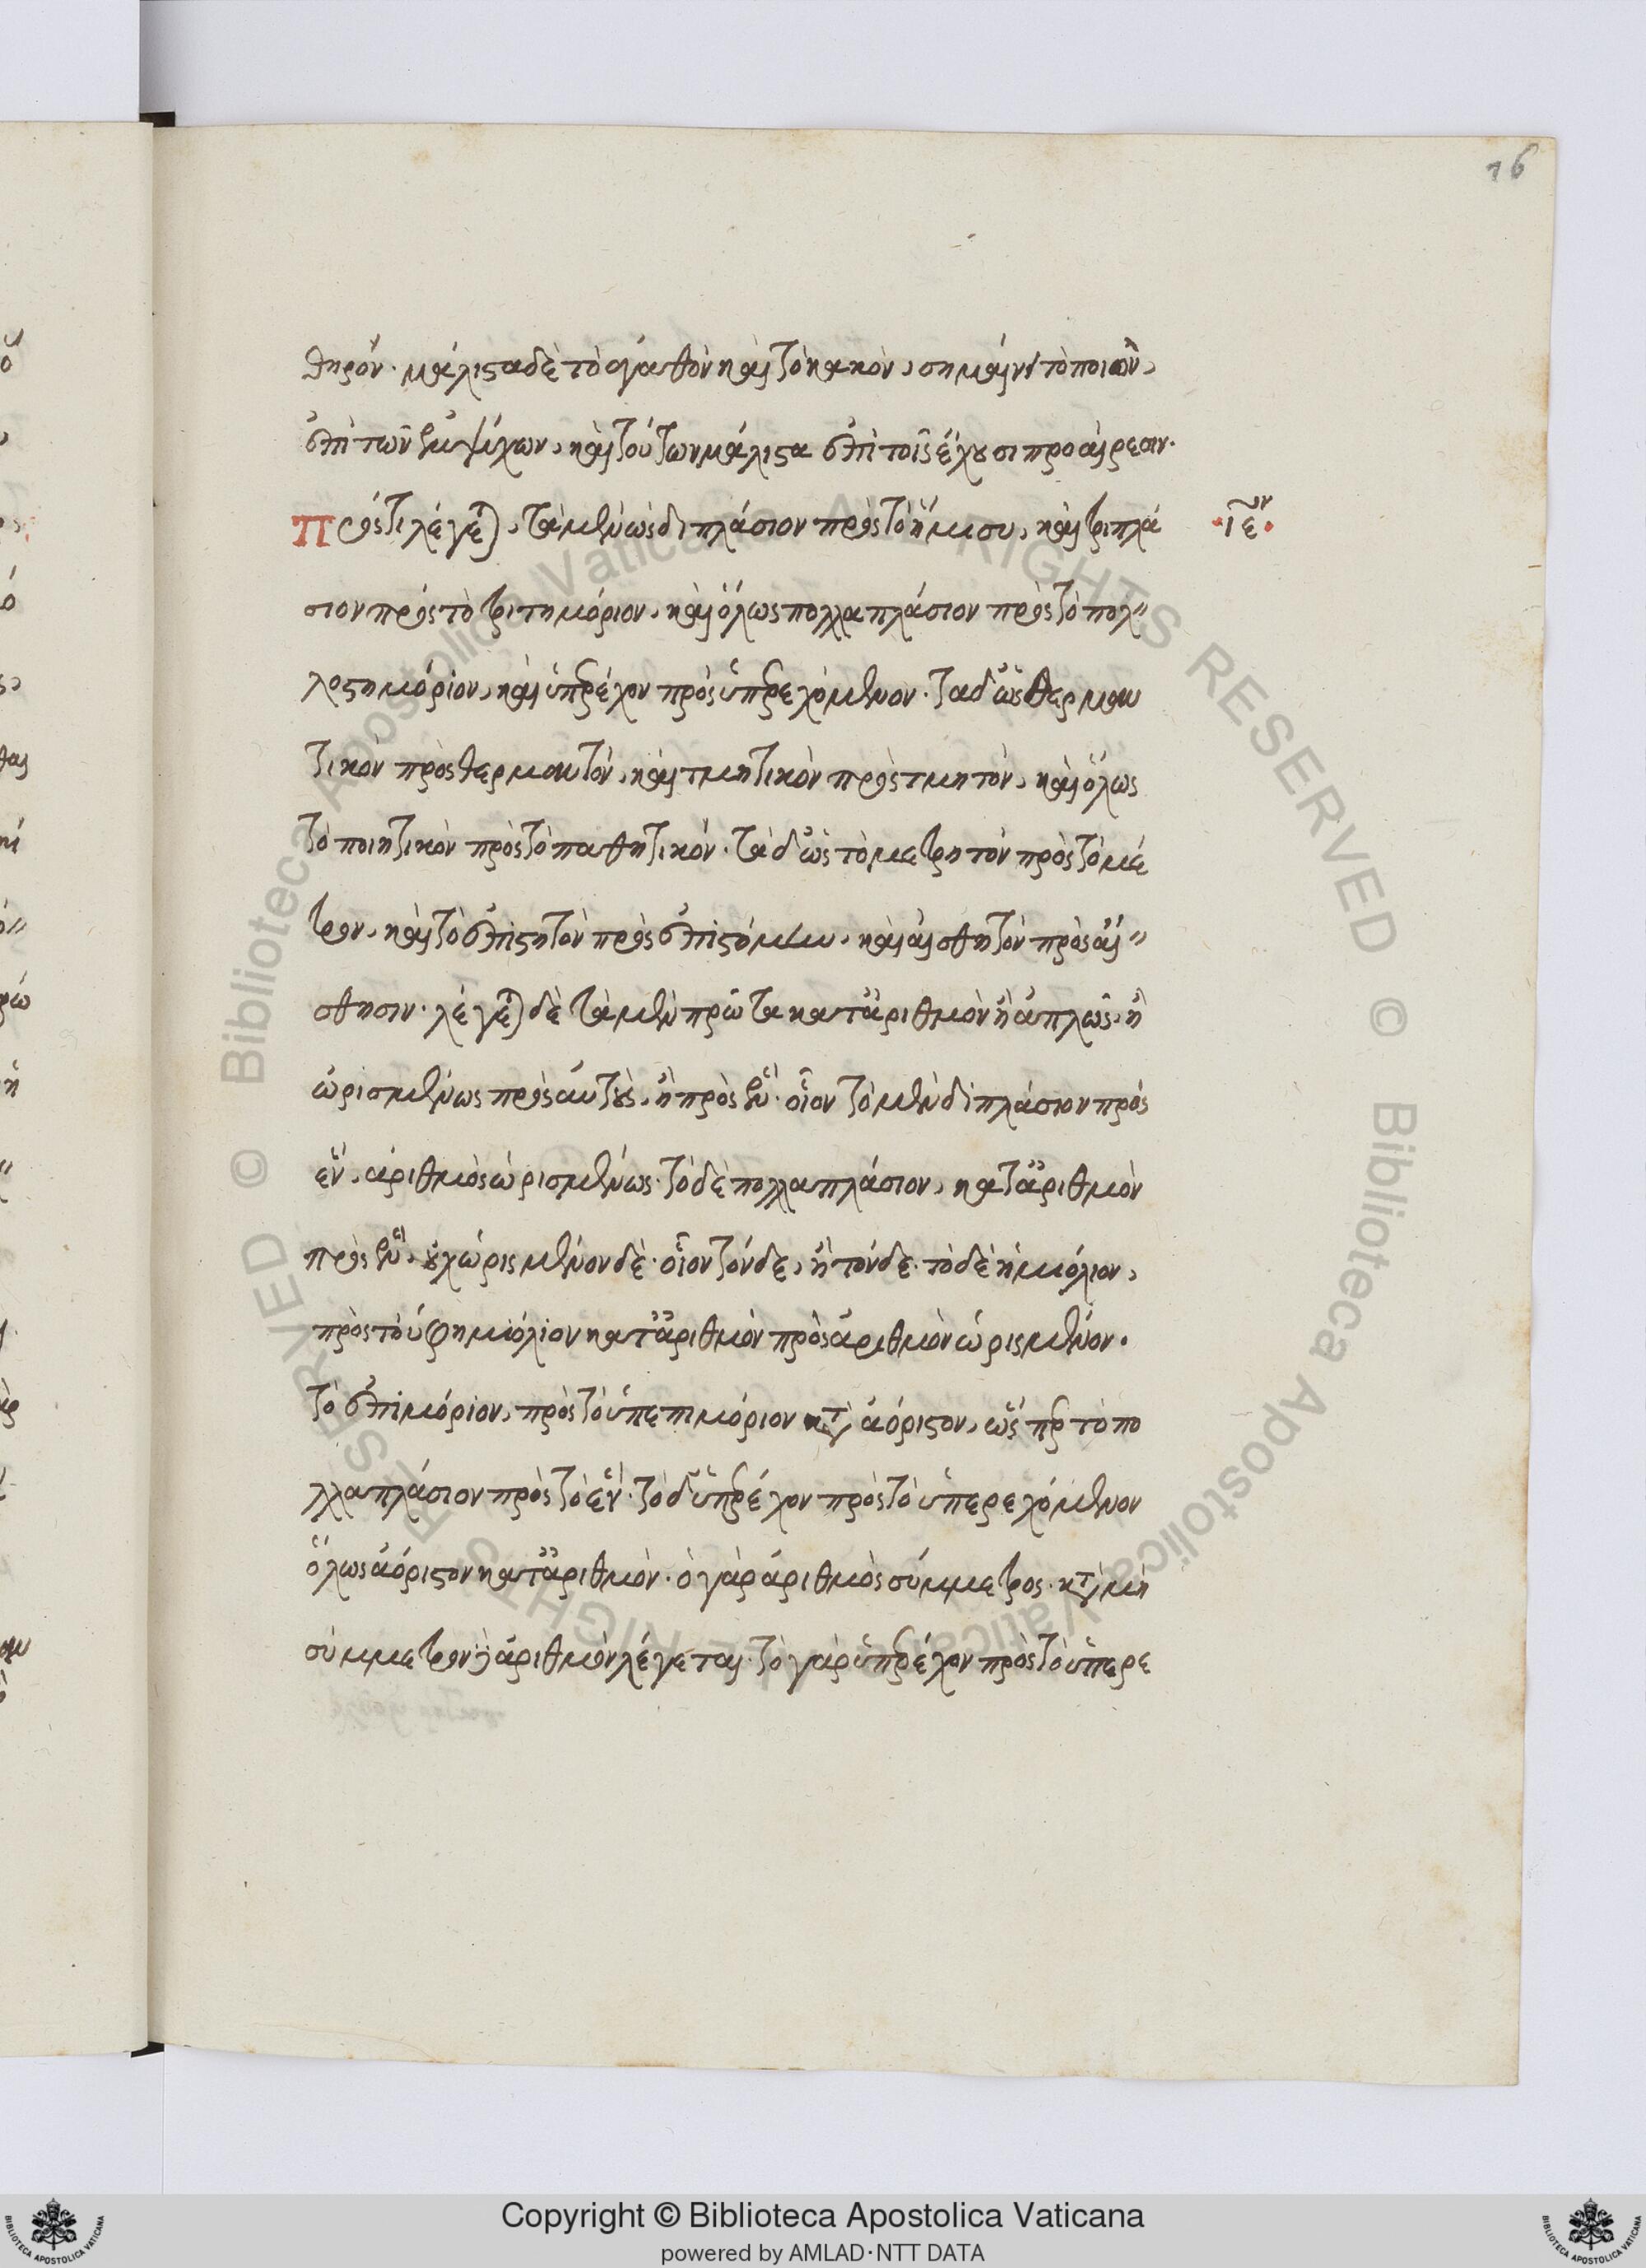 76
θηρόν. μάλιστα δὲ τὸ ἀγαθὸν καὶ τὸ κακὸν, σημαίνει τὸ ποιὸν,
ἐπὶ τῶν ἐμψύχων, καὶ τούτων μάλιστα ἐπὶ τοῖς ἔχουσι προαίρεσιν.
Πρός τι λέγεται, τὰ μὲν ὡς διπλάσιον πρὸς τὸ ἥμισυ, καὶ τριπλά
·ιε ον·
σιον πρὸς τὸ τριτημόριον, καὶ ὅλως πολλαπλάσιον πρὸς τὸ πολ
λοστημόριον, καὶ ὑπερέχον πρὸς ὑπερεχόμενον. τὰ δ' ὡς θερμαν
τικὸν πρὸς θερμαντόν, καὶ τμητικὸν πρὸς τμητόν, καὶ ὅλως
τὸ ποιητικὸν πρὸς τὸ παθητικόν. τὰ δ' ὡς τὸ μετρητὸν πρὸς τὸ μέ
τρον, καὶ τὸ ἐπιστητὸν πρὸς ἐπιστήμην, καὶ αἰσθητὸν πρὸς αἴ
σθησιν. λέγεται δὲ τὰ μὲν πρῶτα κατ' ἀριθμὸν ἢ ἁπλῶς, ἢ
ὡρισμένως πρὸς αὐτοὺς, ἢ πρὸς ἕν. οἷον τὸ μὲν διπλάσιον πρὸς
ἓν, ἀριθμὸς ὡρισμένως. τὸ δὲ πολλαπλάσιον, κατ' ἀριθμὸν
πρὸς ἓν, οὐχ ὡρισμένον δὲ. οἷον τόνδε, ἢ τόνδε. τὸ δὲ ἡμιόλιον,
πρὸς τὸ ὑφημιόλιον κατ' ἀριθμὸν πρὸς ἀριθμὸν ὡρισμένον.
τὸ ἐπιμόριον, πρὸς τὸ ὑπεπιμόριον κατὰ ἀόριστον, ὥσπερ τὸ πο
λλαπλάσιον πρὸς τὸ ἕν. τὸ δ' ὑπερέχον πρὸς τὸ ὑπερεχόμενον
ὅλως ἀόριστον κατ' ἀριθμὸν. ὁ γὰρ ἀριθμὸς σύμμετρος. κατὰ μὴ
σύμμετρον ἀριθμὸν λέγεται. τὸ γὰρ ὑπερέχον πρὸς τὸ ὑπερε
Copyright © Biblioteca Apostolica Vaticana
powered by AMLAD·NTT DATA